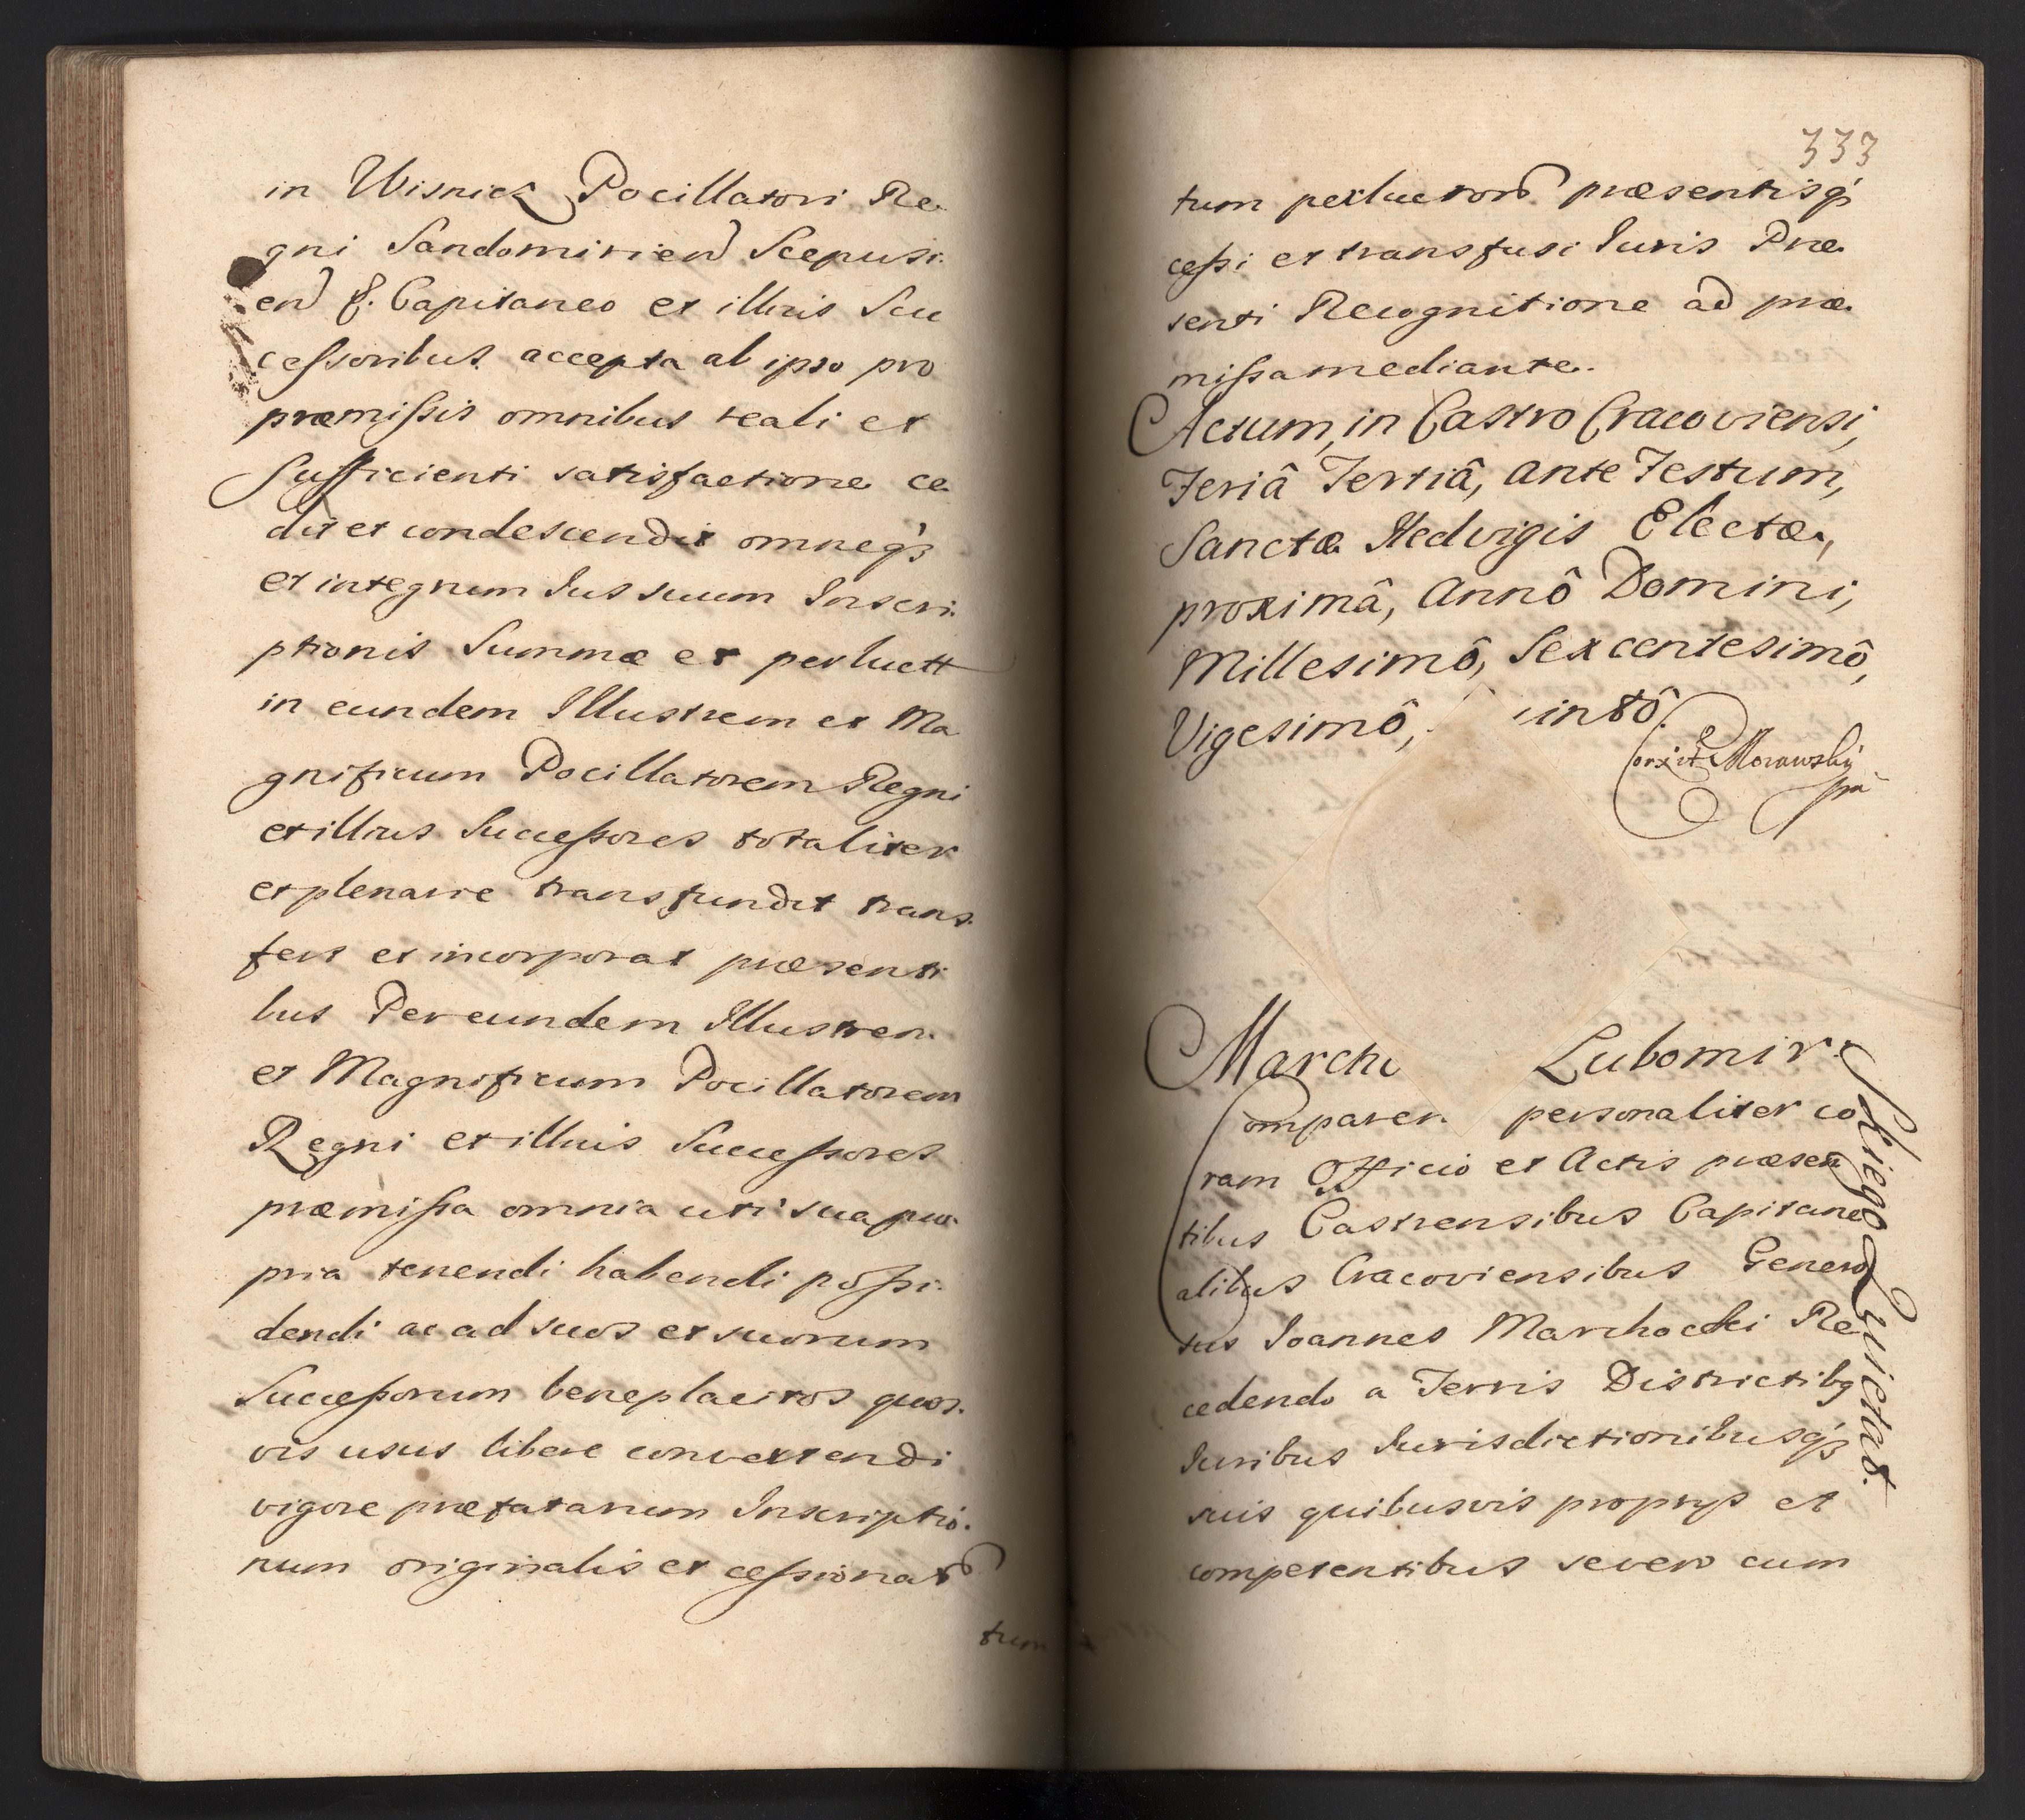 in Wisnicz Pocillatori Re
gni Sandomirien Scepusi
en &. Capitaneo et illius Suc
cessoribus accepta ab ipso pro
præmissis omnibus reali et
Sufficienti satisfactione ce
dit et condescendit omneq₃
et integrum Jus suum Inscri
ptionis Summæ et perlucrt
in eundem Illustrem et Ma
gnificum Pocillatorem Regni
et illius Successores totaliter
et plenarie transfundit trans
fert et incorporat præsenti
bus Per eundem Illustrem
et Magnificum Pocillatorem
Regni et illius Successores
præmissa omnia uti sua pro
pria tenendi habendi possi
dendi ac ad suos et suorum
Successorum beneplacitos quos
vis usus libere convertendi
vigore præfatarum Inscriptio
num originalis et cessionat
tum
333
tum perlucrorum præsentisq₃
cessi et transfusi Juris Præ
senti Recognitione ad præ
missa mediante.
Actum, in Castro Cracoviensi,
Feriâ Tertiâ, ante Festum,
Sanctæ Hedvigis Electæ,
proximâ, Annô Domini,
Millesimô, Sexcentesimô,
Vigesimô, intô.
Corxit Morawsky
mp
March Lubomir
Skiego Quietat.
Comparen personaliter co
ram Officio et Actis præsen
tibus Castrensibus Capitane
alibus Cracoviensibus Genero
sus Joannes Marchocki Re
cedendo a Terris Districtibq
Juribus Jurisdictionibusq₃
suis quibusvis proprys et
competentibus severo cum